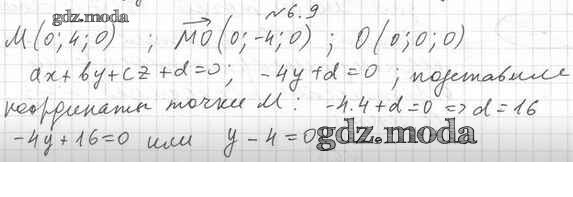 №6.9
gdz.moda
M(0; 4; 0) ; MO(0; -4; 0) ; O(0; 0; 0)
ax+by+cz+d=0; -4y+d=0 ; подставим
координаты точки M: -4·4+d=0 => d=16
-4y+16=0 или y-4=0
gdz.moda